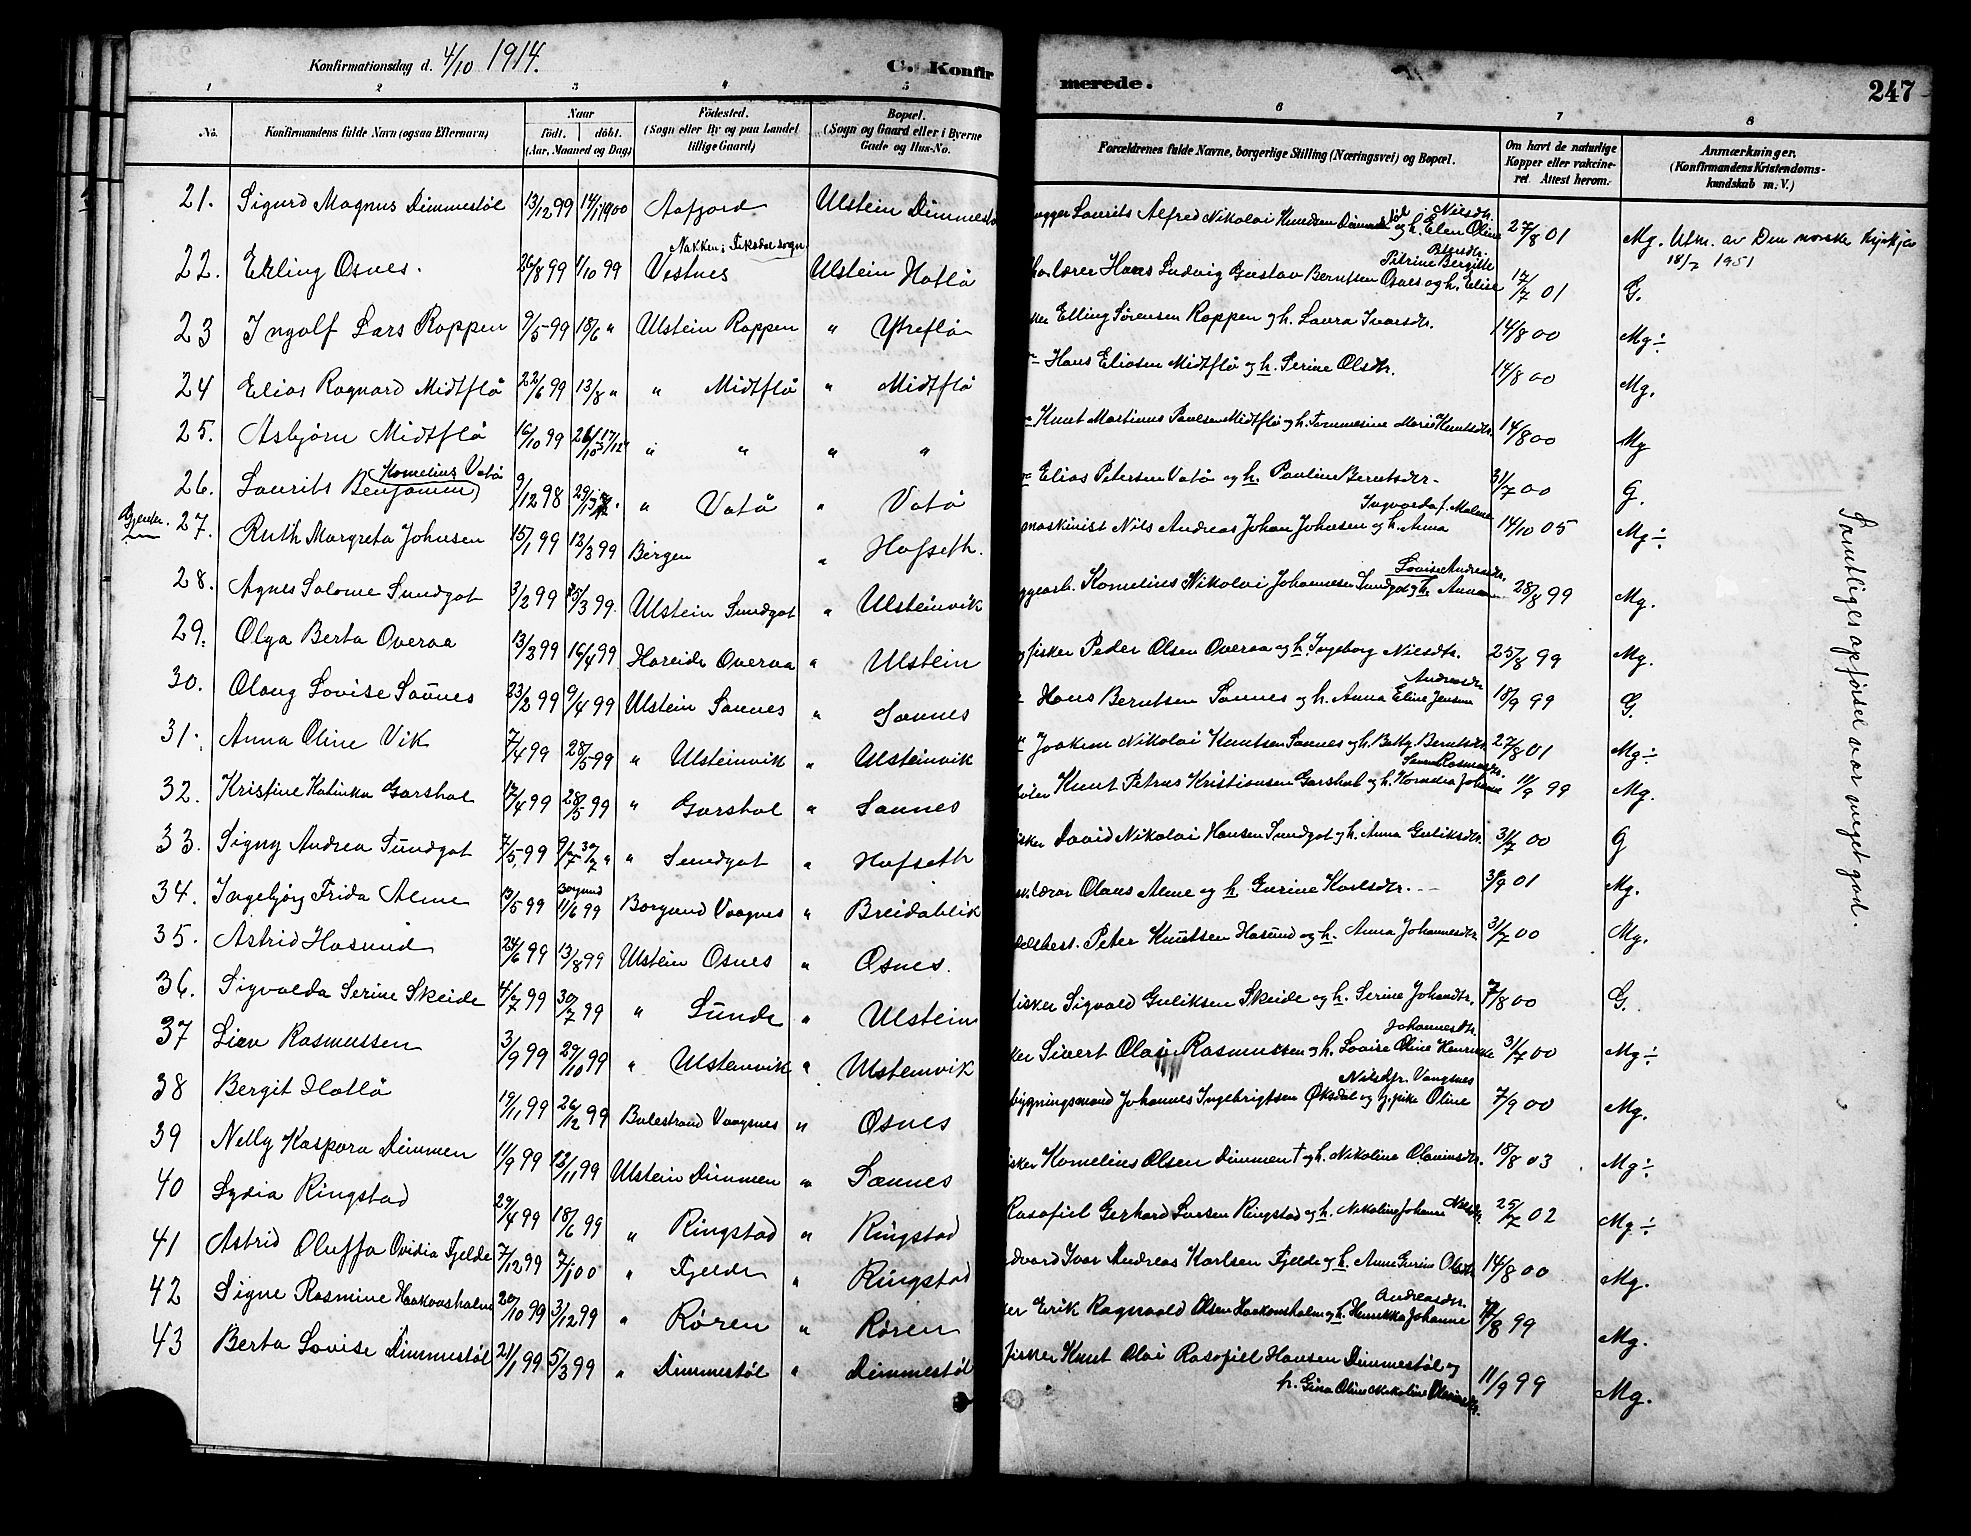 Konfirmationsdag d. 4/10 1914.
C. Konfir merede. 247
1 2 3 4 5 6 7 8
No. Konfirmandens fulde Navn (ogsaa Efternavn) Naar født. døbt. (Aar, Maaned og Dag) Fødested. (Sogn eller By og paa Landet tillige Gaard) Bopæl. (Sogn og Gaard eller i Byerne Gade og Hus-No. Forældrenes fulde Navne, borgerlige Stilling (Næringsvei) og Bopæl. Om havt de naturlige Kopper eller vakcineret Attest herom. Anmærkninger. (Konfirmandens Kristendomskundskab m. V.)
21. Sigurd Magnus Dimmestøl 13/12 99 14/1 1900 Aafjord Ulstein Dimmestø Laurits Alfred Nikolai Knudsen Dimmestøl og h. Elen Oline Nilsdtr. 27/8 01 Mg. Utm. av Den norske kyrkja 18/7 1951
22. Erling Osnes. 26/8 99 1/10 99 Vestnes Nakken i Fiksdal sogn Ulstein Hatlø lærer Hans Ludvig Gustav Berntsen Osnes og h. Elise Petrine Bergitte Berntsdtr. 17/7 01 G.
23 Ingolf Lars Roppen 9/5 99 18/6 " Ulstein Roppen " Ytreflø Elling Sørensen Roppen og h. Laura Ivarsdtr. 14/8 00 Mg ÷
24 Elias Ragnard Midtflø 22/6 99 13/8 " " Midtflø " Midtflø Hans Eliasen Midtflø og h. Serine Olsdtr. 14/8 00 Mg.
25. Asbjørn Midtflø 16/10 99 " " " " Knut Martinus Paulsen Midtflø og h. Tommesine Marie Knutsdtr. 14/8 00 Mg
26. Laurits Benjamin Kornelius Vatø 9/12 98 " Vatø " Vatø Elias Petersen Vatø og h. Pauline Berntsdtr. 31/7 00 G.
27. Ruth Margreta Johnsen 15/1 99 12/3 99 Bergen " Hofseth. maskinist Nils Andreas Johan Johnsen og h. Anna Ingvarda f. Malme 14/10 05 Mg ÷
28. Agnes Salome Sundgot 3/2 99 25/3 99. Ulstein Sundgot " Ulsteinvik Kornelius Nikolai Johannesen Sundgot og h. Anna Lovise Andreasdtr. 28/8 99 Mg.
29. Olga Berta Overaa 13/2 99 16/4 99 Hareide Overaa " Ulstein fisker Peder Olsen Overaa og h. Ingeborg Nilsdtr. 25/8 99 Mg.
30. Olaug Lovise Saunes 23/2 99 9/4 99 Ulstein Saunes " Saunes Hans Berntsen Saunes og h. Anna Eline Jensine Andreasdtr 18/9 99 G.
31. Anna Oline Vik 7/4 99 28/5 99 " Ulsteinvik " Ulsteinvik Joakim Nikolai Knutsen Saunes og h. Betty Berntsdtr. 27/8 01 Mg ÷
32. Kristine Katinka Garshol 17/4 99 28/5 99 " Garshol " Saunes Knut Petrus Kristiansen Garshol og h. Kornelia Johanne Rasmusdtr. 11/9 99 Mg.
33. Signy Andrea Sundgot 7/5 99 9/7 30/7 " " Sundgot " Hofseth David Nikolai Hansen Sundgot og h. Anna Guliksdtr. 31/7 00 G
34. Ingebjørg Frida Alme 13/5 99 Borgund 11/6 99 Borgund Vaagnes " Breidablik lærar Olaus Alme og h. Gurine Karlsdtr. 9 01 Mg.
35. Astrid Hasund 24/6 99 13/8 99 Ulstein Osnes " Osnes. Peter Knutsen Hasund og h. Anna Johannesdtr 31/7 00 Mg.
36. Sigvalda Serine Skeide 4/7 99 30/7 99 " Sunde " Ulstein fisker Sigvald Guliksen Skeide og h. Serine Johandtr. 7/8 00 G.
37 Liav Rasmussen 3/9 99 29/10 99 " Ulsteinvik " Ulsteinvik Sivert Olai Rasmussen og h. Lovise Oline Henrikke Johannesdtr. 31/7 00 Mg ÷
38 Bergit Hatlø 19/11 99 26/12 99 Balestrand Vaagsnes " Osnes bygningsmand Johannes Ingebrigtsen Øksdal og g. pike Oline Nilsdtr. Vangsnes 7/9 00 Mg.
39 Nelly Kaspara Dimmen 11/9 99 12/11 99 Ulstein Dimmen " Saunes fisker Kornelius Olsen Dimmen † og h. Nikoline Olavinsdtr. 18/8 03 Mg ÷
40 Lydia Ringstad 29/4 99 18/6 99 " Ringstad " Ringstad Rasofiel Gerhard Larsen Ringstad og h. Nikoline Johanne Nilsdtr. 25/7 02 Mg ÷
41 Astrid Oluffa Ovidia Fjelde 7/12 99 7/1 00 " Fjelde " Ringstad Ivar Andreas Karlsen Fjelde og h. Anne Gurine Olsdtr 14/8 00 Mg.
42 Signe Rasmine Haakonsholm 20/10 99 3/12 99 " Røren " Røren Erik Ragnvald Olsen Haakonsholm og h. Henrikka Johanne Andreasdtr. 8 99 Mg.
43 Berta Lovise Dimmestøl 21/1 99 5/3 99 " Dimmestøl " Dimmestøl fisker Knut Olai Rasofiel Hansen Dimmestøl og h. Gina Oline Nikoline Olavinsdtr. 11/9 99 Mg.
Samtliges opførsel var meget god.